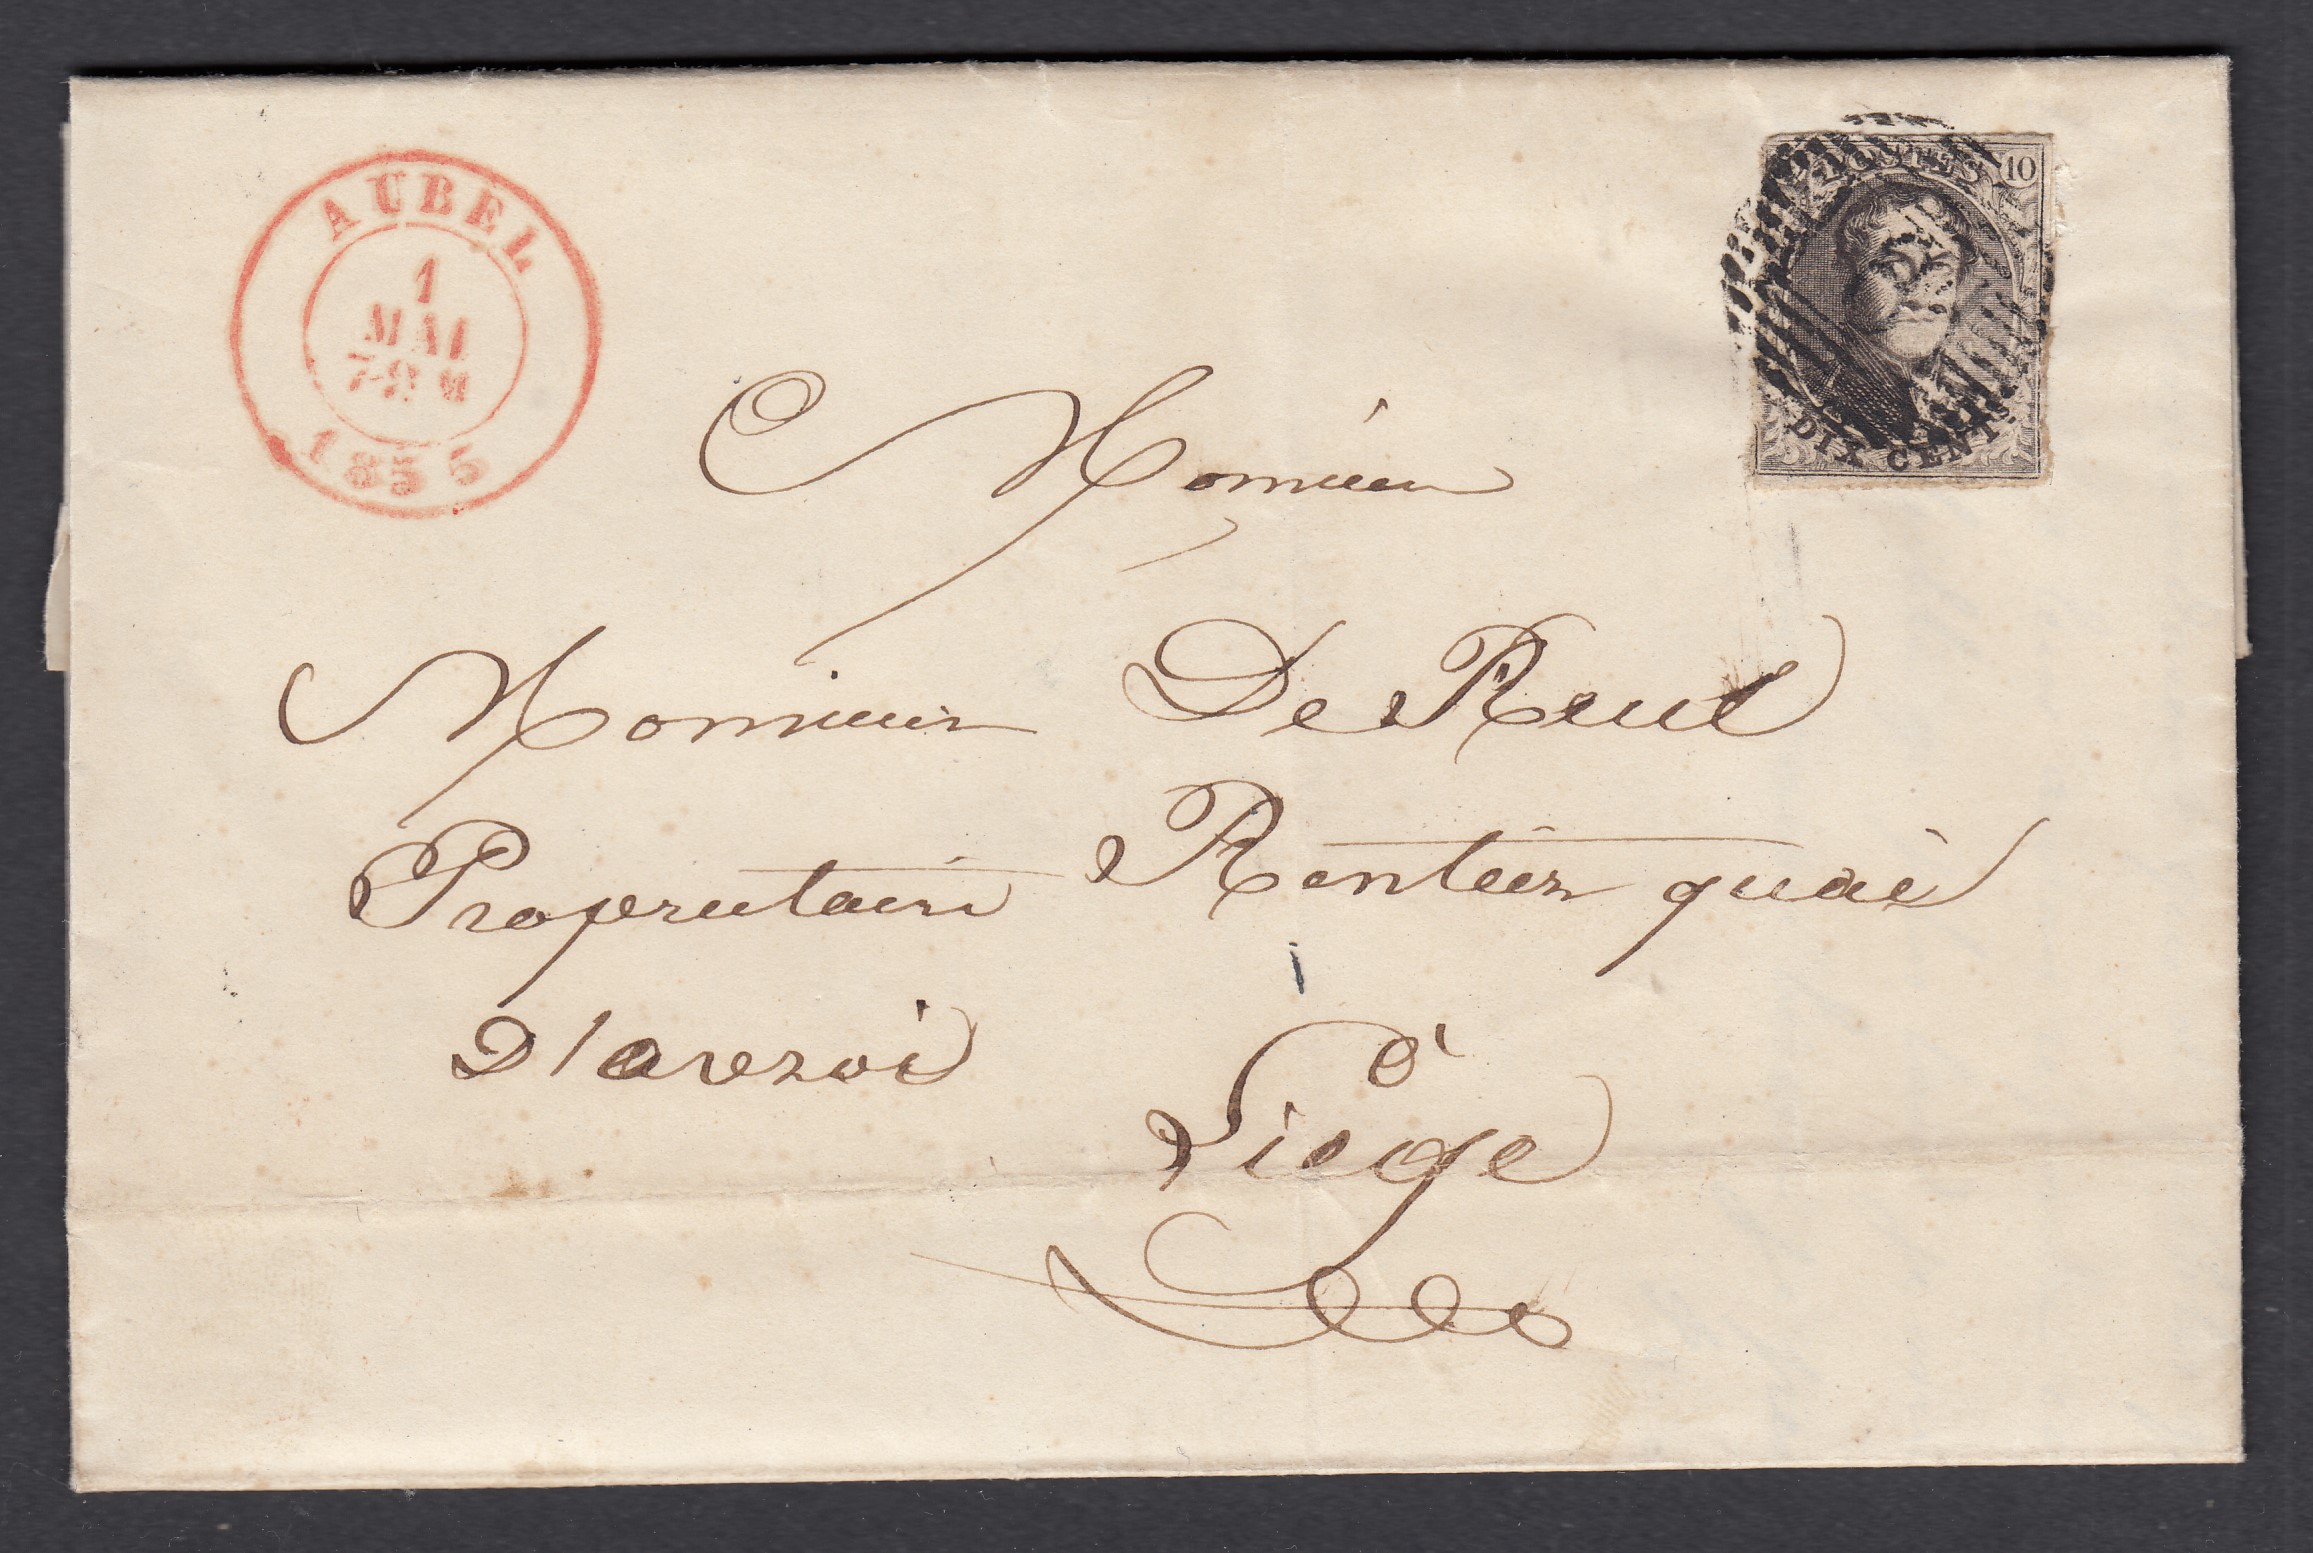 AUBEL
1
MAI
7-9 M
1855
POSTES 10
DIX CENTS.
Monsieur
Monsieur De Reul
Proprietaire Rentier quai
D'avroi
à
Liege